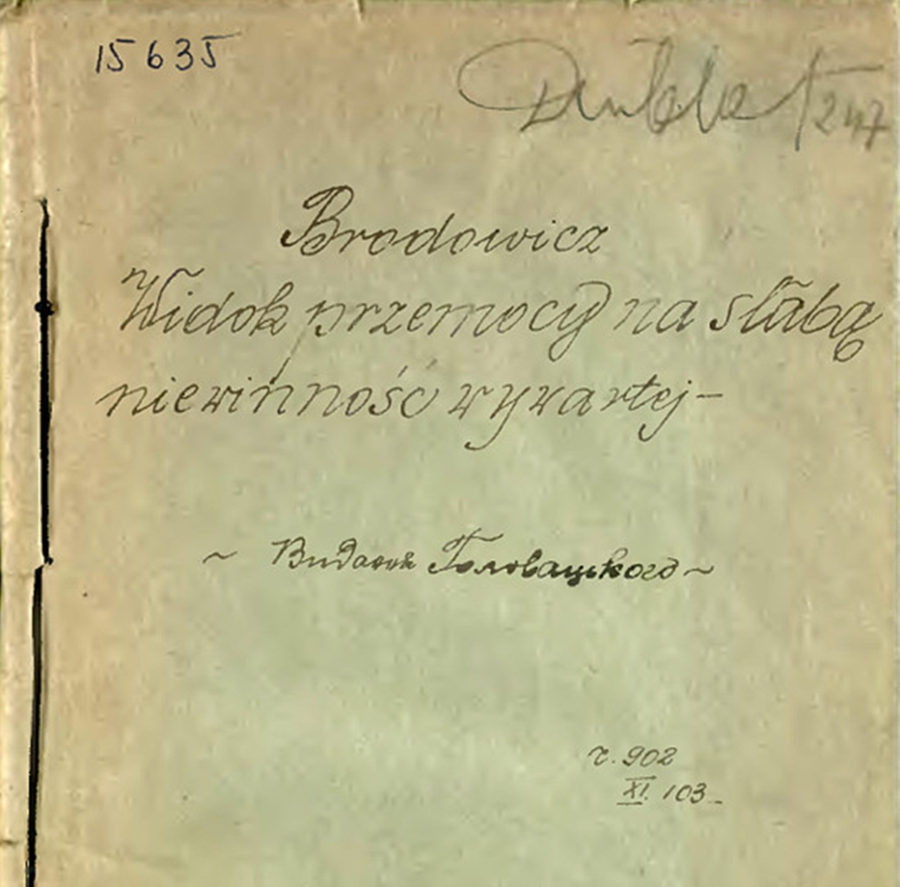 15635
Dublet 247
Brodowicz
Widok przemocy na słabą
niewinność wywartej -
~ Головацького ~
902
XI. 103